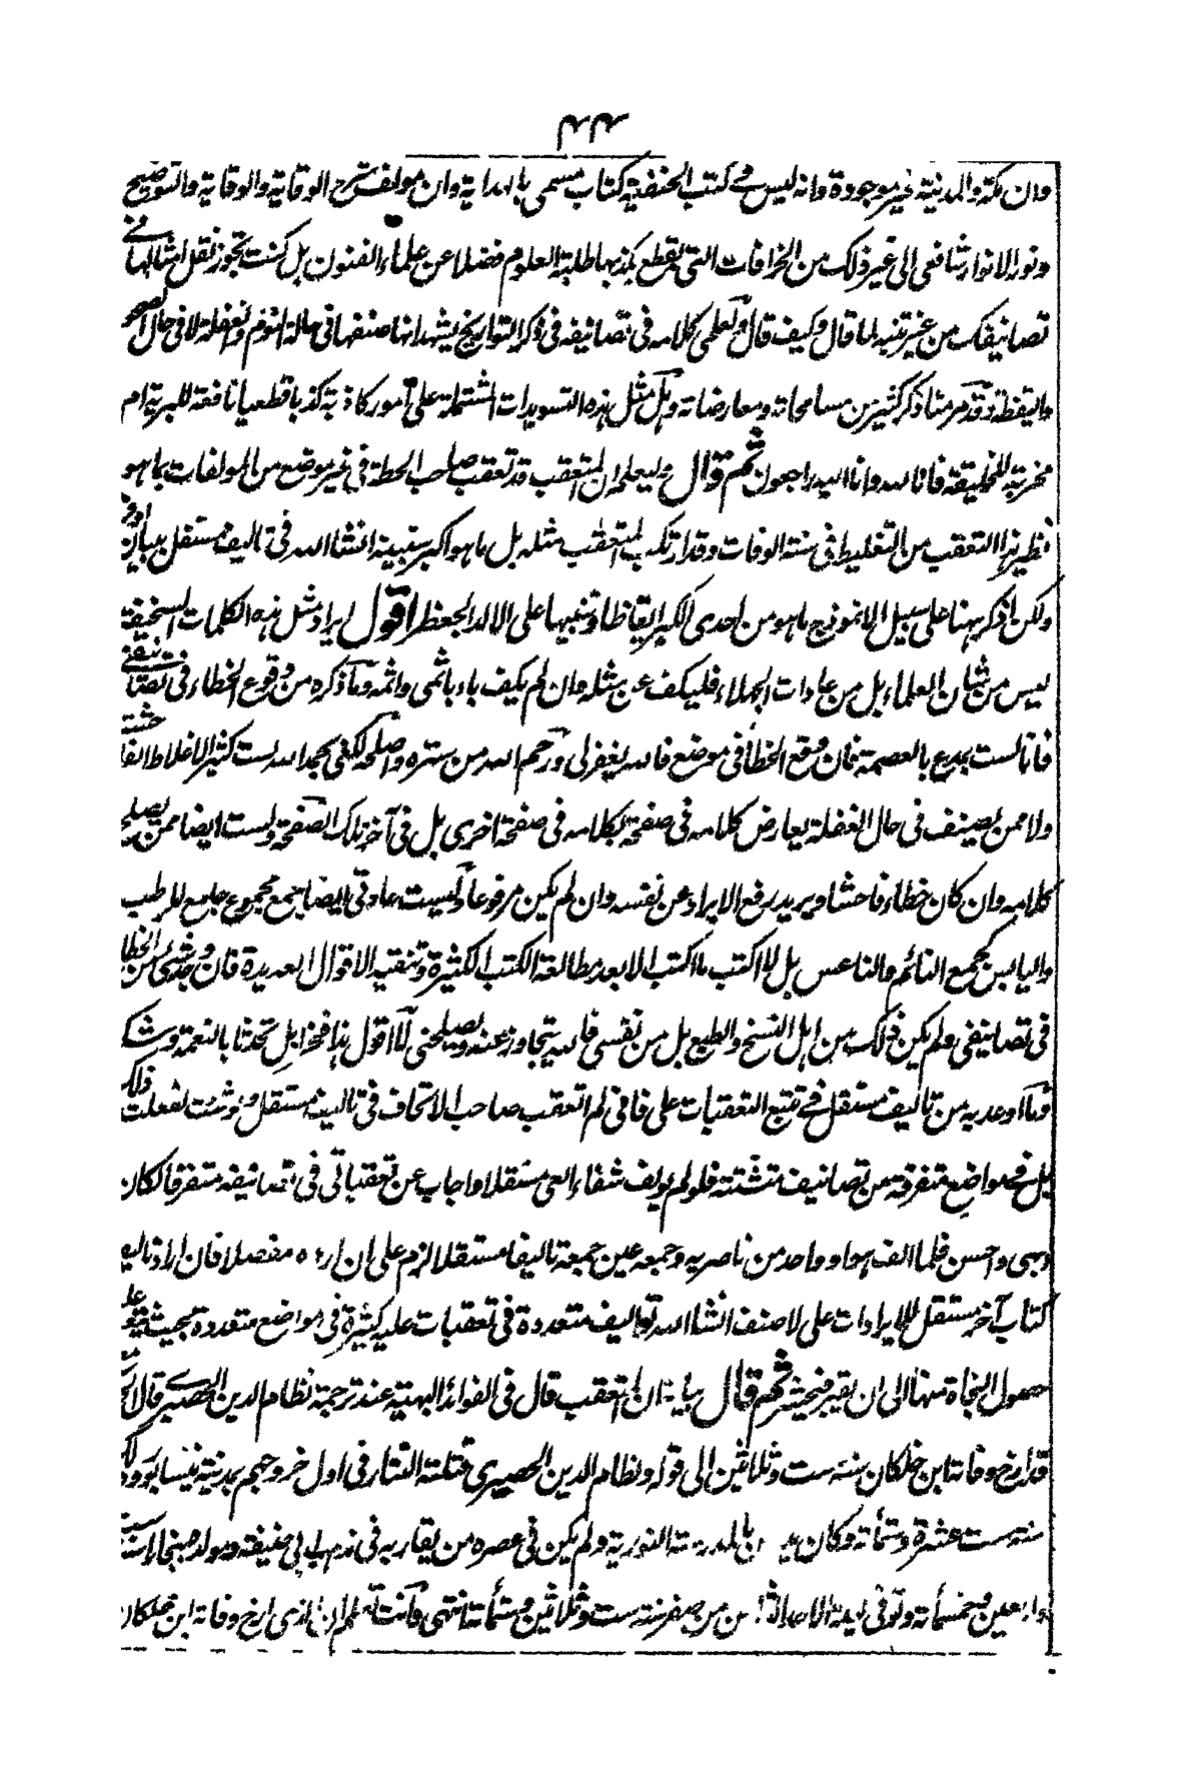 ۲۲۳
وان مكة والمدينة غير موجودة وانه ليس في كتب الحنفية كتاب مسمى بالهداية وان مولف شرح الوقاية والوقاية والتوضيح
ونور الانوار شافعي الى غير ذلك من الخرافات التي يقطع بكذبها طلبة العلوم فضلا عن علماء الفنون بل كنت تجوز نقل امثالها في
تصانيفك من غير تنبيه لما قال وكيف قال ولعلمى كلامه في تصانيفه في ذكر التواريخ يشهد انها صنفها في حالة النوم والغفلة لا في حال الصحو
واليقظة وقد مر منا ذكر كثير من مسامحاته ومعارضاته وهل مثل هذه التسويدات المشتملة على امور كاذبة كذبا قطعيا نافعة للبرية ام
مخربة للخليقة فانا لله وانا اليه راجعون ثم قال وليعلم ان المتعقب قد تعقب صاحب الحطة في غير موضع من المولفات بما هو
نظير هذا التعقب من التغليط في سنة الوفات وقد ارتكب المتعقب مثله بل ما هو اكبر سنبينه انشاء الله في تاليف مستقل ببيان اوفى
ولكن اذكر ههنا على سبيل الانموذج ما هو من احدى الكبر ايقاظا وتنبيها على الالد الجعظر اقول ايراد مثل هذه الكلمات السخيفة
ليس من شان العلماء بل من عادات الجهلاء فليكف عن مثله وان لم يكف باء باثمى واثمه وما ذكره من وقوع الخطاء في تصانيفى
فانا لست بمدع بالعصمة فان وقع الخطأ في موضع فالله يغفر لى ورحم الله من ستره واصلحه لكنى بحمد الله لست كثير الاغلاط الفاحشة
ولا ممن يصنف في حال الغفلة يعارض كلامه في صفحة لكلامه في صفحة اخرى بل في آخر تلك الصفحة ولست ايضا ممن يصلح
كلامه وان كان خطاء فاحشا ويريد رفع الايراد عن نفسه وان لم يكن مرفوعا وليست عادتى ايضا جمع مجموع جامع للرطب
واليابس كجمع النائم والناعس بل لا اكتب ما اكتب الا بعد مطالعة الكتب الكثيرة وتنقيد الاقوال العديدة فان وجد شئ من الخطا
في تصانيفى ولم يكن ذلك من اهل النسخ والطبع بل من نفسى فالله يتجاوز عنه ويصلحنى لا اقول هذا فخرا بل تحدثا بالنعمة وشكرا
وما اوعد به من تاليف مستقل في تتبع التعقبات على فانى لم اتعقب صاحب الاتحاف في تاليف مستقل ولو شئت لفعلت ذلك
بل في مواضع متفرقة من تصانيف متشتتة فلو لم يولف شفاء العى مستقلا واجاب عن تعقباتى في تصانيفه متفرقا لكان
اوجى واحسن فلما الف هو او واحد من ناصريه وجمعه عين جمعه تاليفا مستقلا لزم على ان ارده مفصلا فان اراد تاليف
كتاب آخر مستقل للايرادات على لاصنف انشاء الله تواليف متعددة في تعقبات عليه كثيرة في مواضع متعددة بحيث يتعذر عليه
حصول النجاة منها الى ان يقبر فيحشر ثم قال بيانه ان المتعقب قال في الفوائد البهية عند ترجمة نظام الدين الحصيرى قال
قد ارخ وفاته ابن خلكان سنة ست وثلاثين الى قوله ونظام الدين الحصيرى قتله التتار في اول خروجهم بمدينة نيسابور وذلك
سنة ست عشرة وستمأة وكان يدرس بالمدرسة النورية ولم يكن في عصره من يقاربه في مذهب ابى حنيفة ومولد ابيه
واربعين وخمسمأة وتوفى ليلة الاحد الثامن من صفر سنة ست وثلاثين وستمأة انتهى وانت تعلم ان الذى ارخ وفاته ابن خلكان